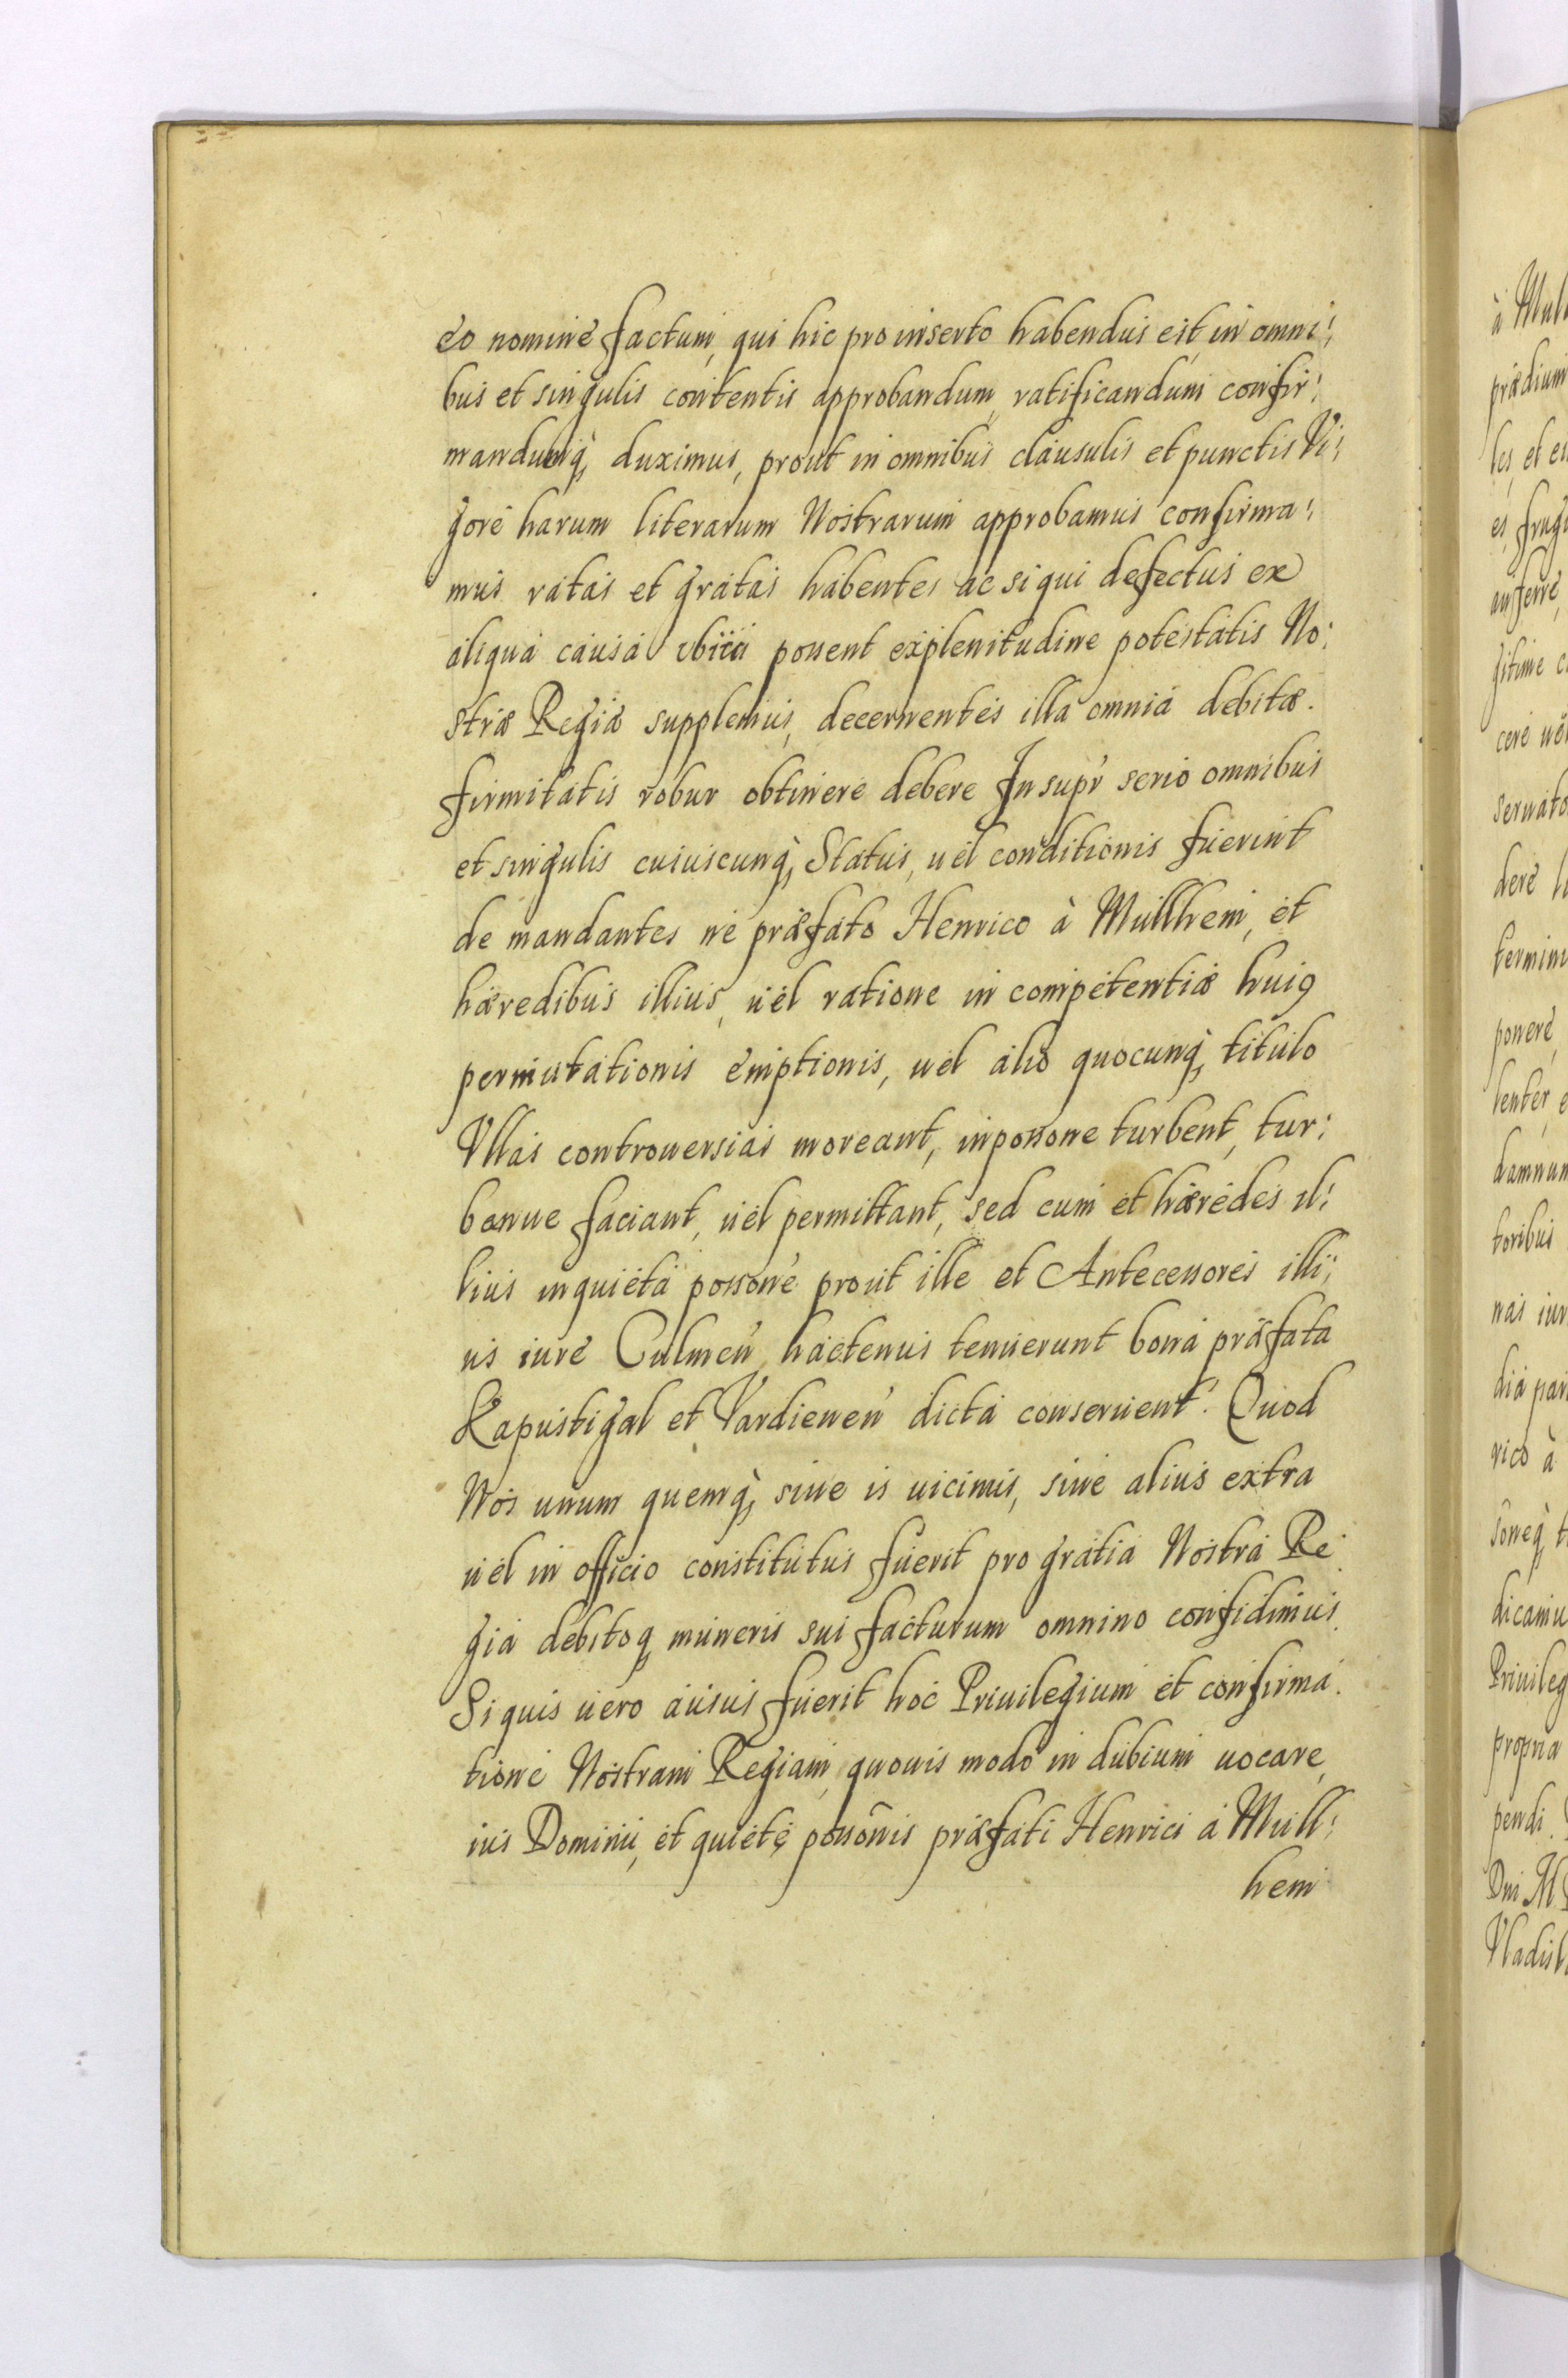 eo nomine factum, qui hic pro inserto habendus est, in omni:
bus et singulis contentis approbandum, ratificandum confir:
mandumq́, duximus, prout in omnibus clausulis et punctis Vi:
gore harum literarum Nostrarum approbamus confirma:
mus ratas et gratas habentes ac si qui defectus ex
aliqua causa ponent explenitudine potestatis No:
stræ Regiæ supplemus, decernentes illa omnia debitæ.
firmitatis robur obtinere debere Insupr serio omnibus
et singulis cuiuscunq́, Status, uel conditionis fuerint
de mandantes ne præfato Henrico à Mullhem, et
hæredibus illius, uel ratione in competentiæ huiꝰ
permutationis emptionis, uel alio quocunq́, titulo
Vllas controuersias moueant, inpossone turbent, tur:
banue faciant, uel permittant, sed eum et hæredes il:
lius inquieta possone prout ille et Antecessores illi:
us iure Culmen hactenus tenuerunt bona præfata
Kapustigal et Vardienen dicta conseruent. Quod
Nos unum quemq́, siue is uicinus, siue alius extra
uel in officio constitutus fuerit pro gratia Nostra Re:
gia debitoq muneris sui facturum omnino confidimus.
Si quis uero ausus fuerit hoc Priuilegium et confirma:
tione Nostram Regiam quouis modo in dubium uocare,
ius Dominii, et quietę possōnis præfati Henrici à Mull:
hem
à Mul
prædium
les, et e
es, frug
auferre,
gitime c
cere
seruato
dere l
termin
ponere,
lenter, e
damnum
toribus
nas iur
dia par
rico à
soneq́ t
dicamu
Priuileg
propria
pendi.
Dni M
Vladisl